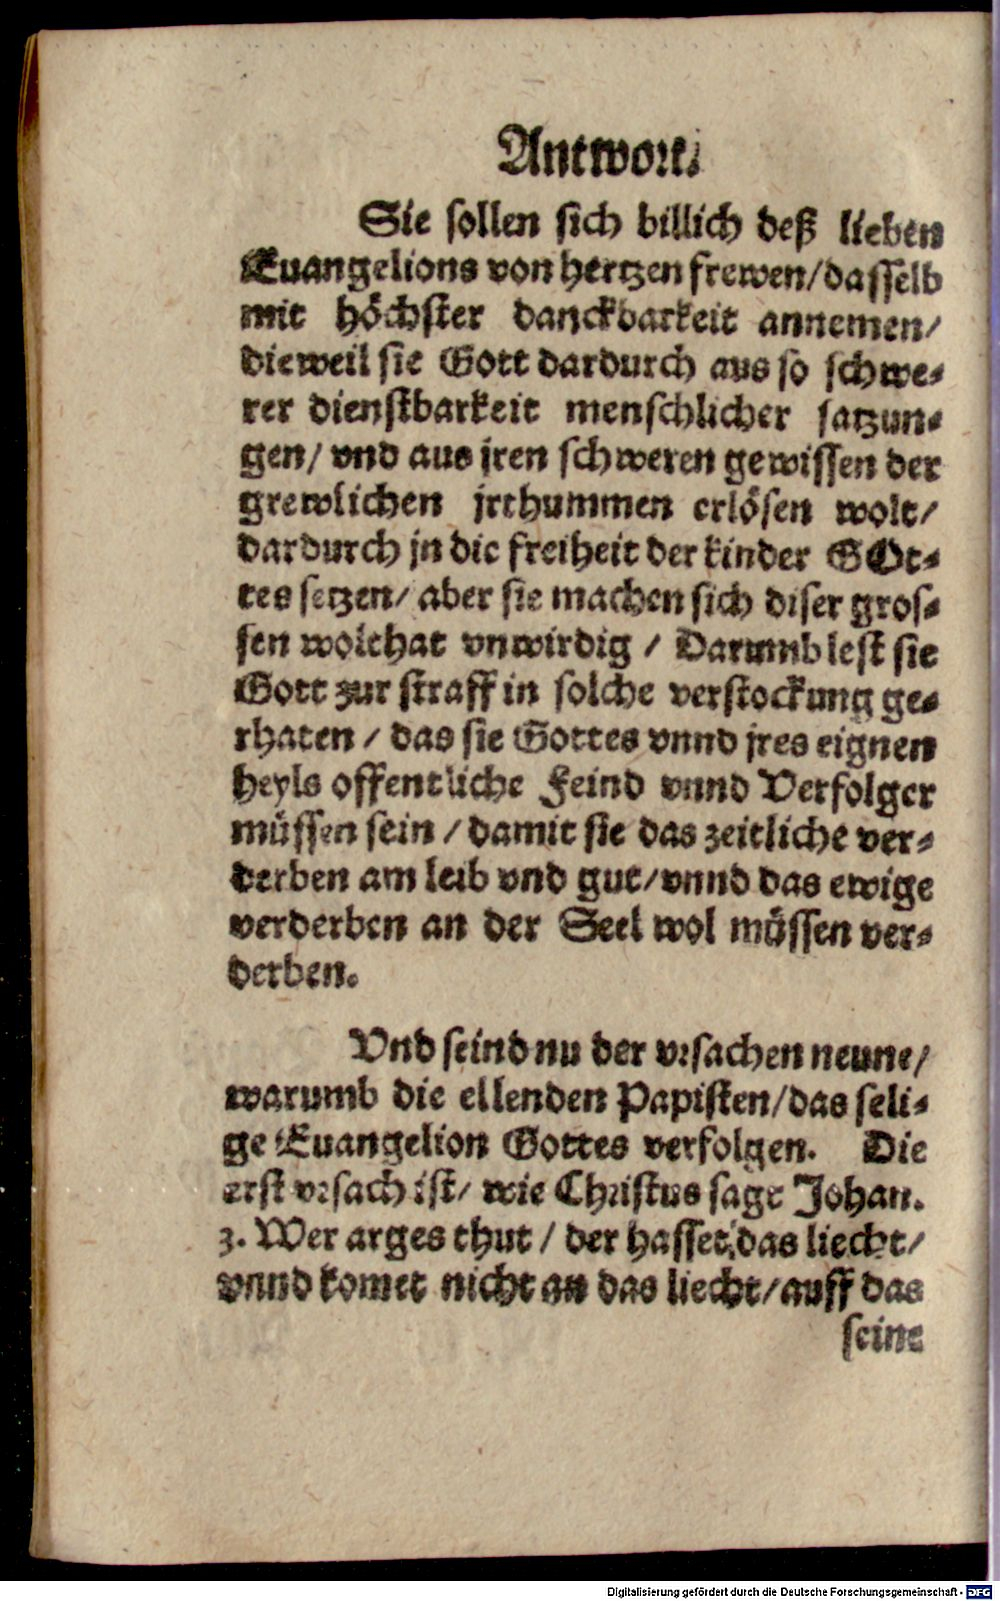 Antwort.
Sie sollen sich billich deß lieben
Euangelions von hertzen frewen/dasselb
mit höchster danckbarkeit annemen/
dieweil sie Gott dardurch aus so schwe-
rer dienstbarkeit menschlicher satzun-
gen/ vnd aus jren schweren gewissen der
grewlichen jrthummen erlösen wolt/
dardurch jn die freiheit der kinder GOt-
tes setzen/ aber sie machen sich diser gros-
sen wolthat vnwirdig / Darumb lest sie
Gott zur straff in solche verstockung ge-
rhaten / das sie Gottes vnnd jres eignen
heyls offentliche Feind vnnd Verfolger
müssen sein / damit sie das zeitliche ver-
derben am leib vnd gut/vnnd das ewige
verderben an der Seel wol müssen ver-
derben.
Vnd seind nu der vrsachen neune/
warumb die ellenden Papisten/das seli-
ge Euangelion Gottes verfolgen. Die
erst vrsach ist/ wie Christus sagt Johan.
3. Wer arges thut / der hasset das liecht/
vnnd komet nicht an das liecht/auff das
seine
Digitalisierung gefördert durch die Deutsche Forschungsgemeinschaft - DFG